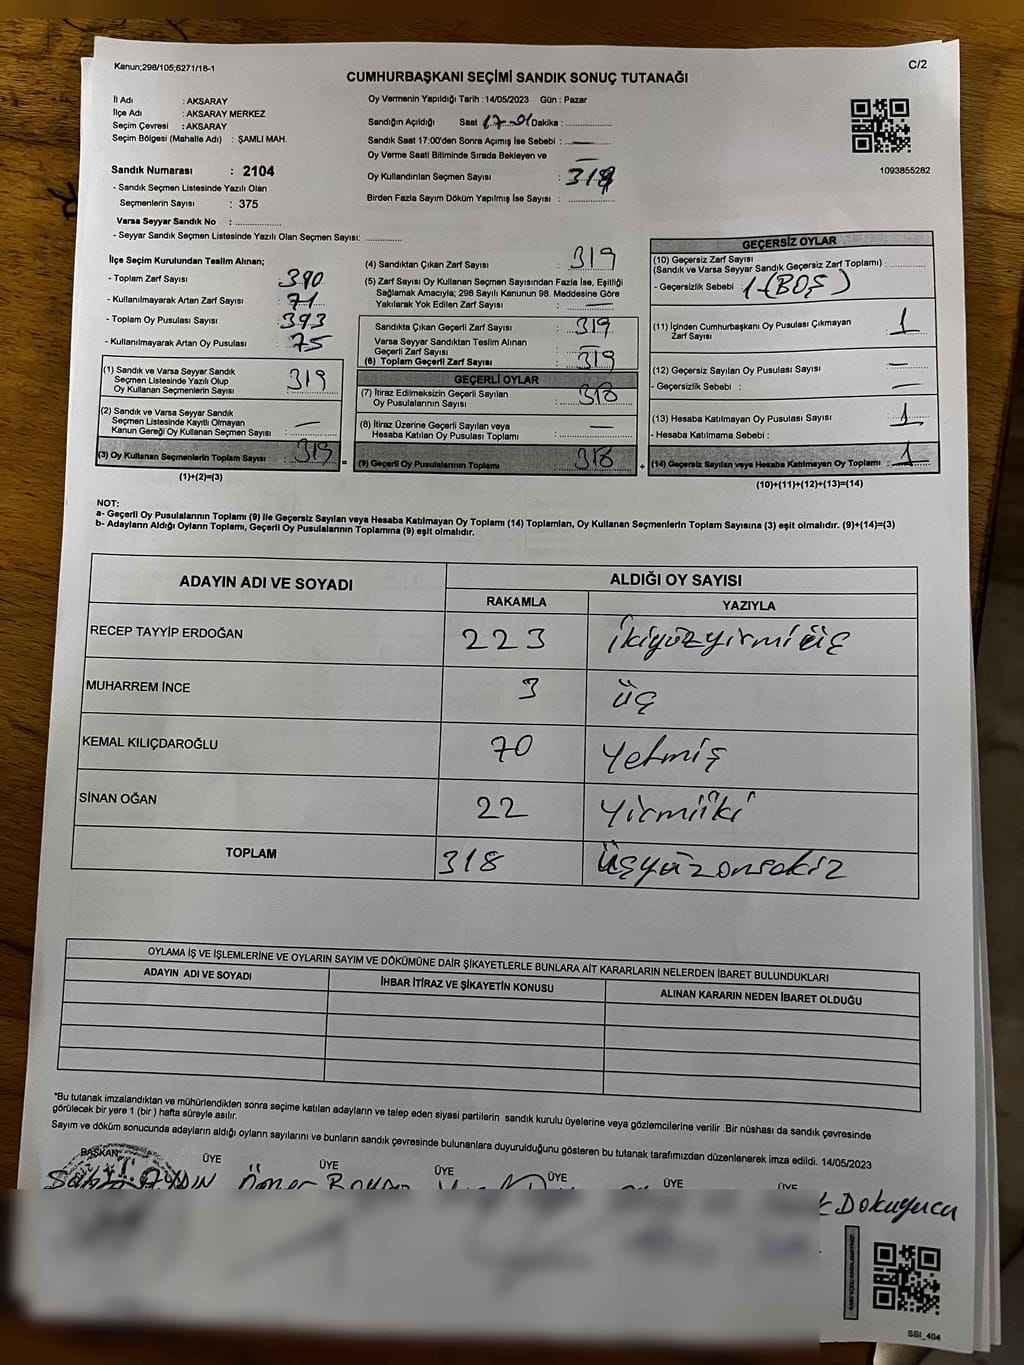 Kanun;298/105;6271/18-1
C/2
CUMHURBAŞKANI SEÇİMİ SANDIK SONUÇ TUTANAĞI
İl Adı : AKSARAY
İlçe Adı : AKSARAY MERKEZ
Seçim Çevresi : AKSARAY
Seçim Bölgesi (Mahalle Adı) : ŞAMLI MAH.
Sandık Numarası : 2104
- Sandık Seçmen Listesinde Yazılı Olan
Seçmenlerin Sayısı : 375
Varsa Seyyar Sandık No :
- Seyyar Sandık Seçmen Listesinde Yazılı Olan Seçmen Sayısı:
Oy Vermenin Yapıldığı Tarih :14/05/2023 Gün : Pazar
Sandığın Açıldığı Saat 17-01 Dakika :
Sandık Saat 17:00'den Sonra Açımış İse Sebebi : —
Oy Verme Saati Bitiminde Sırada Bekleyen ve —
Oy Kullandırılan Seçmen Sayısı : 319
Birden Fazla Sayım Döküm Yapılmış İse Sayısı :
1093855282
İlçe Seçim Kurulundan Teslim Alınan;
- Toplam Zarf Sayısı : 390
- Kullanılmayarak Artan Zarf Sayısı : 71
- Toplam Oy Pusulası Sayısı : 393
- Kullanılmayarak Artan Oy Pusulası : 75
(1) Sandık ve Varsa Seyyar Sandık
Seçmen Listesinde Yazılı Olup
Oy Kullanan Seçmenlerin Sayısı : 319
(2) Sandık ve Varsa Seyyar Sandık
Seçmen Listesinde Kayıtlı Olmayan
Kanun Gereği Oy Kullanan Seçmen Sayısı : —
(3) Oy Kullanan Seçmenlerin Toplam Sayısı : 319
(1)+(2)=(3)
=
(4) Sandıktan Çıkan Zarf Sayısı : 319
(5) Zarf Sayısı Oy Kullanan Seçmen Sayısından Fazla İse, Eşitliği
Sağlamak Amacıyla; 298 Sayılı Kanunun 98. Maddesine Göre
Yakılarak Yok Edilen Zarf Sayısı : —
Sandıkta Çıkan Geçerli Zarf Sayısı : 319
Varsa Seyyar Sandıktan Teslim Alınan
Geçerli Zarf Sayısı : —
(6) Toplam Geçerli Zarf Sayısı : 319
GEÇERLİ OYLAR
(7) İtiraz Edilmeksizin Geçerli Sayılan
Oy Pusulalarının Sayısı : 318
(8) İtiraz Üzerine Geçerli Sayılan veya
Hesaba Katılan Oy Pusulası Toplamı : —
(9) Geçerli Oy Pusulalarının Toplamı : 318
+
GEÇERSİZ OYLAR
(10) Geçersiz Zarf Sayısı
(Sandık ve Varsa Seyyar Sandık Geçersiz Zarf Toplamı) :
- Geçersizlik Sebebi : 1-(BOŞ)
(11) İçinden Cumhurbaşkanı Oy Pusulası Çıkmayan
Zarf Sayısı : 1
(12) Geçersiz Sayılan Oy Pusulası Sayısı : —
- Geçersizlik Sebebi : —
(13) Hesaba Katılmayan Oy Pusulası Sayısı : 1
- Hesaba Katılmama Sebebi :
(14) Geçersiz Sayılan veya Hesaba Katılmayan Oy Toplamı : 1
(10)+(11)+(12)+(13)=(14)
NOT:
a- Geçerli Oy Pusulalarının Toplamı (9) ile Geçersiz Sayılan veya Hesaba Katılmayan Oy Toplamı (14) Toplamları, Oy Kullanan Seçmenlerin Toplam Sayısına (3) eşit olmalıdır. (9)+(14)=(3)
b- Adayların Aldığı Oyların Toplamı, Geçerli Oy Pusulalarının Toplamına (9) eşit olmalıdır.
ADAYIN ADI VE SOYADI ALDIĞI OY SAYISI
RAKAMLA YAZIYLA
RECEP TAYYİP ERDOĞAN 223 ikiyüzyirmiüç
MUHARREM İNCE 3 üç
KEMAL KILIÇDAROĞLU 70 Yetmiş
SİNAN OĞAN 22 Yirmiiki
TOPLAM 318 Üçyüzonsekiz
OYLAMA İŞ VE İŞLEMLERİNE VE OYLARIN SAYIM VE DÖKÜMÜNE DAİR ŞİKAYETLERLE BUNLARA AİT KARARLARIN NELERDEN İBARET BULUNDUKLARI
ADAYIN ADI VE SOYADI İHBAR İTİRAZ VE ŞİKAYETİN KONUSU ALINAN KARARIN NEDEN İBARET OLDUĞU
*Bu tutanak imzalandıktan ve mühürlendikten sonra seçime katılan adayların ve talep eden siyasi partilerin sandık kurulu üyelerine veya gözlemcilerine verilir .Bir nüshası da sandık çevresinde
görülecek bir yere 1 (bir ) hafta süreyle asılır.
Sayım ve döküm sonucunda adayların aldığı oyların sayılarını ve bunların sandık çevresinde bulunanlara duyurulduğunu gösteren bu tutanak tarafımızdan düzenlenerek imza edildi. 14/05/2023
BAŞKAN ÜYE ÜYE ÜYE ÜYE ÜYE ÜYE
AYDIN Ömer Dokuyucu
SSI_404